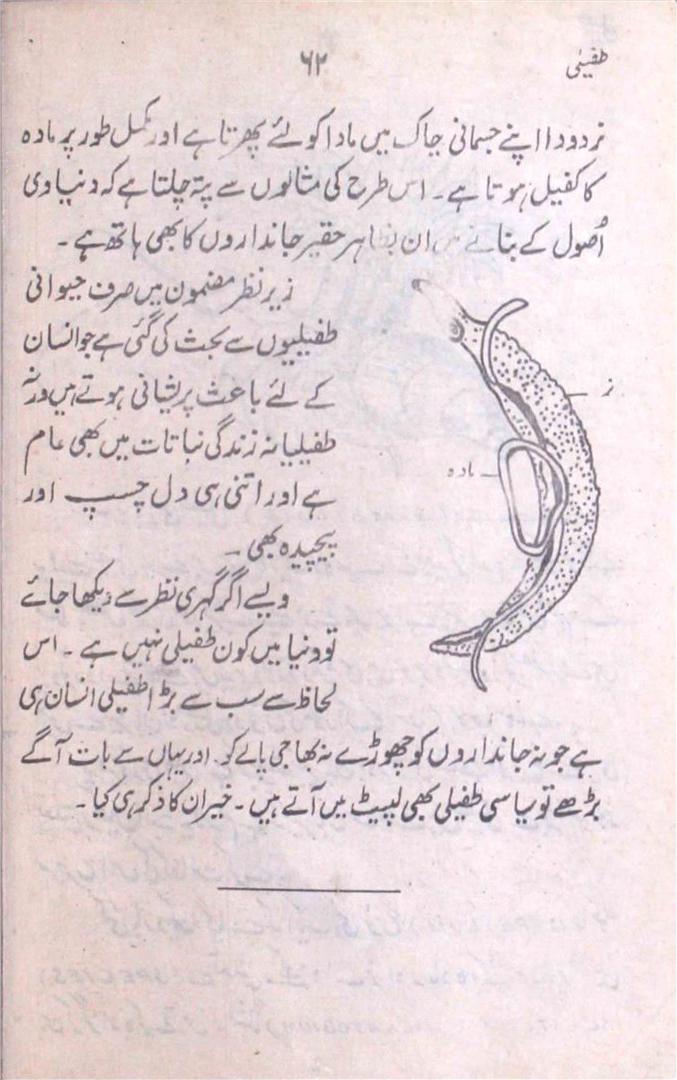 طفیلی
۶۲
نر دودا اپنے جسمانی چاک میں مادا کو لئے پھرتا ہے اور مکمل طور پر مادہ
کا کفیل ہوتا ہے۔ اس طرح کی مثالوں سے پتہ چلتا ہے کہ دنیاوی
اُصول کے بنانے میں ان بظاہر حقیر جانداروں کا بھی ہاتھ ہے۔
زیر نظر مضمون میں صرف حیوانی
طفیلیوں سے بحث کی گئی ہے جو انسان
کے لئے باعث پریشانی ہوتے ہیں ورنہ
طفیلیانہ زندگی نباتات میں بھی عام
ہے اور اتنی ہی دل چسپ اور
پیچیدہ بھی۔
نر
مادہ
ویسے اگر گہری نظر سے دیکھا جائے
تو دنیا میں کون طفیلی نہیں ہے۔ اس
لحاظ سے سب سے بڑا طفیلی انسان ہی
ہے جو نہ جانداروں کو چھوڑے نہ بھاجی پالے کو۔ اور یہاں سے بات آگے
بڑھے تو سیاسی طفیلی بھی لپیٹ میں آتے ہیں۔ خیر ان کا ذکر ہی کیا۔